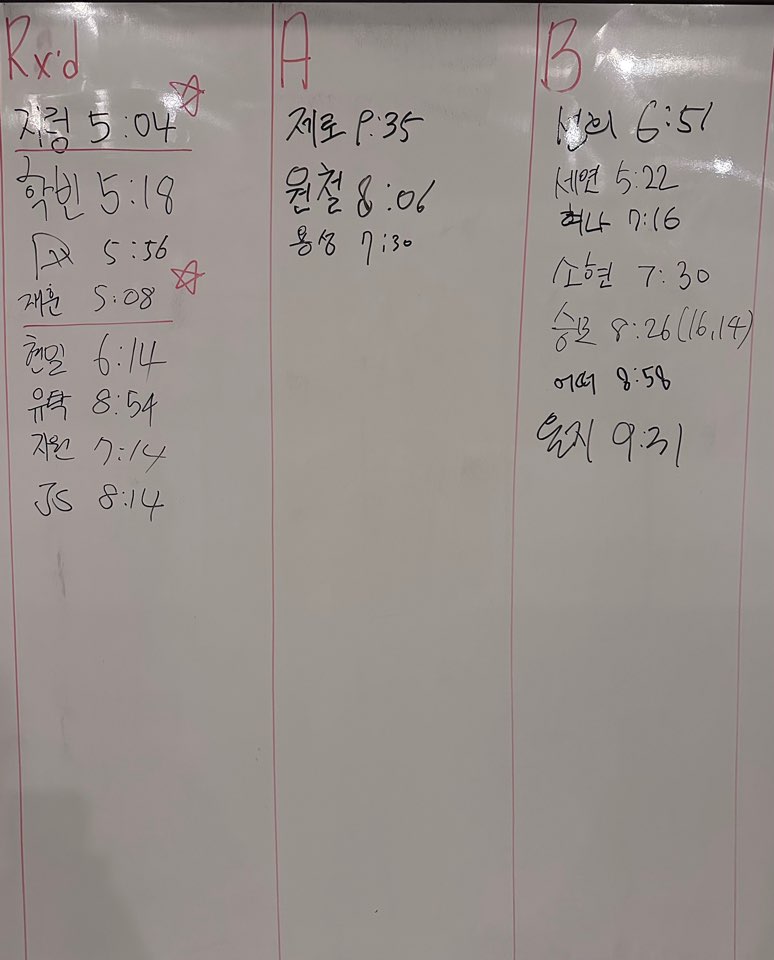 Rx'd
지령 5:04
학빈 5:18
5:56
재훈 5:08
현일 6:14
유탁 8:54
지원 7:14
JS 8:14
A
제로 9:35
원철 8:06
용성 7:30
B
6:51
세연 5:22
혀나 7:16
소현 7:30
8:26 (16,14)
어떠 8:58
은지 9:31